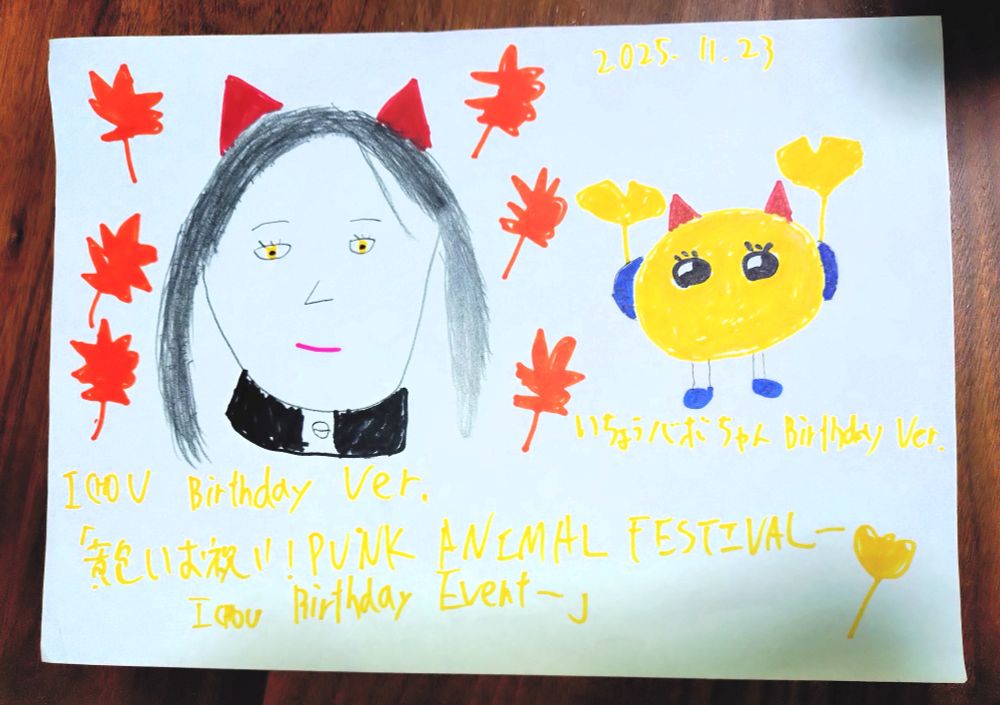 2025.11.23
いちょうバボちゃん Birthday Ver.
ICHOU Birthday Ver.
「黄色いお祝い!PUNK ANIMAL FESTIVAL―
ICHOU Birthday Event―」